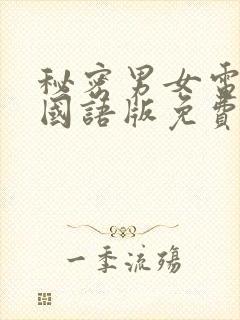 秘密男女電
國語版免費
一季流殤